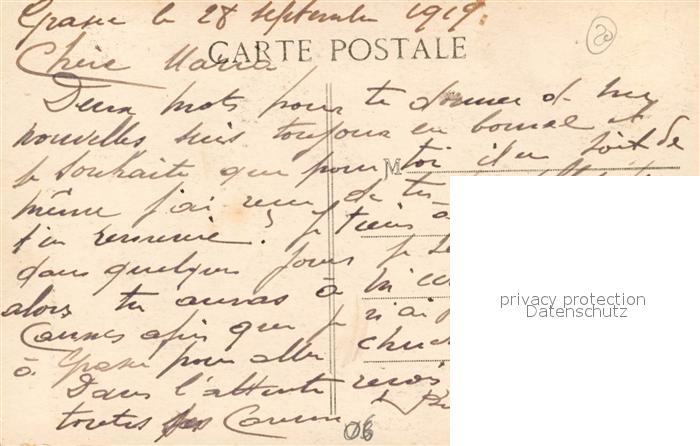 Grasse le 28 septembre 1919.
20
CARTE POSTALE
Chère Maria
Deux mots pour te donner de mes
nouvelles suis toujours en bonne et
je souhaite que pour toi il en soit de
M
même j'ai reçu de tes
t'en remercie. Je tiens à
dans quelques jours je
alors tu auras à m'
Cannes afin que je n'ai
à Grasse pour aller
Dans l'attente reçois
toutes
06
privacy protection
Datenschutz